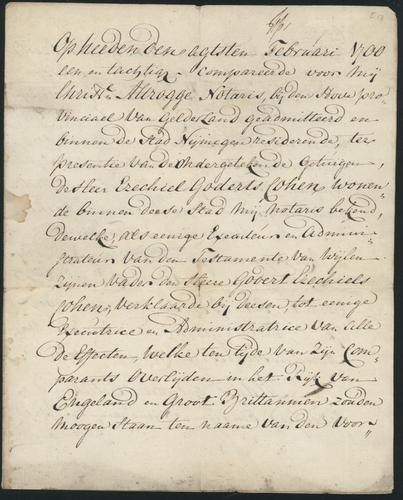 Op heeden den agtsten Februari 1700
een en tachtig, compareerde voor mij
Christn. Altrogge Notaris, bij den Hove pro„
vinciael van Gelderland geadmitteerd en
binnen de Stad Nijmegen resideerende, ter
presentie van de Ondergetekende Getuigen,
De Heer Ezechiel Goderts Cohen, wonen„
de binnen deese Stad mij notaris bekend,
Dewelke, als eenige Executeur en Admini„
strateur van den Testamente van wijlen
Zijnen Vader den Heere Govert Ezechiels
Cohen, verklaarde bij deesen, tot eenige
Executrice en Administratrice van alle
De Effecten, welke ten tijde van Zijn Com„
parants Overlijden in het Rijk van
Engeland en Groot Brittannien zouden
moogen Staan ten naame van den Voor„